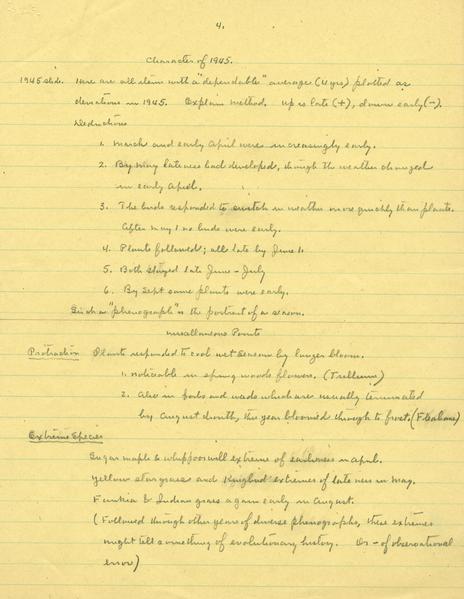 4.
Character of 1945.
1945 slide. Here are all items with a "dependable" average (4 yrs) plotted as
deviations in 1945. Explain method. Up is late (+), down early (-).
Deductions
1. March and early April were increasingly early.
2. By May lateness had developed, though the weather changed
in early April.
3. The birds responded to switch in weather more quickly than plants.
After May 1 no birds were early.
4. Plants followed; all late by June 1.
5. Both stayed late June - July
6. By Sept some plants were early.
Such a "phenograph" is the portrait of a season.
Miscellaneous Points
Protraction Plants responded to cool wet season by longer bloom.
1. Noticeable in spring woods flowers. (Trillium)
2. Also in forbs and weeds which are usually terminated
by August drouth, this year bloomed through to frost. (
Extreme Species
Sugar maple & whippoorwill extreme of earliness in April.
Yellow stargrass and Kingbird extremes of lateness in May.
Funkia & Indian grass again early in August.
(Followed through other years of diverse phenographs, these extremes
might tell something of evolutionary history. Or - of observational
error)